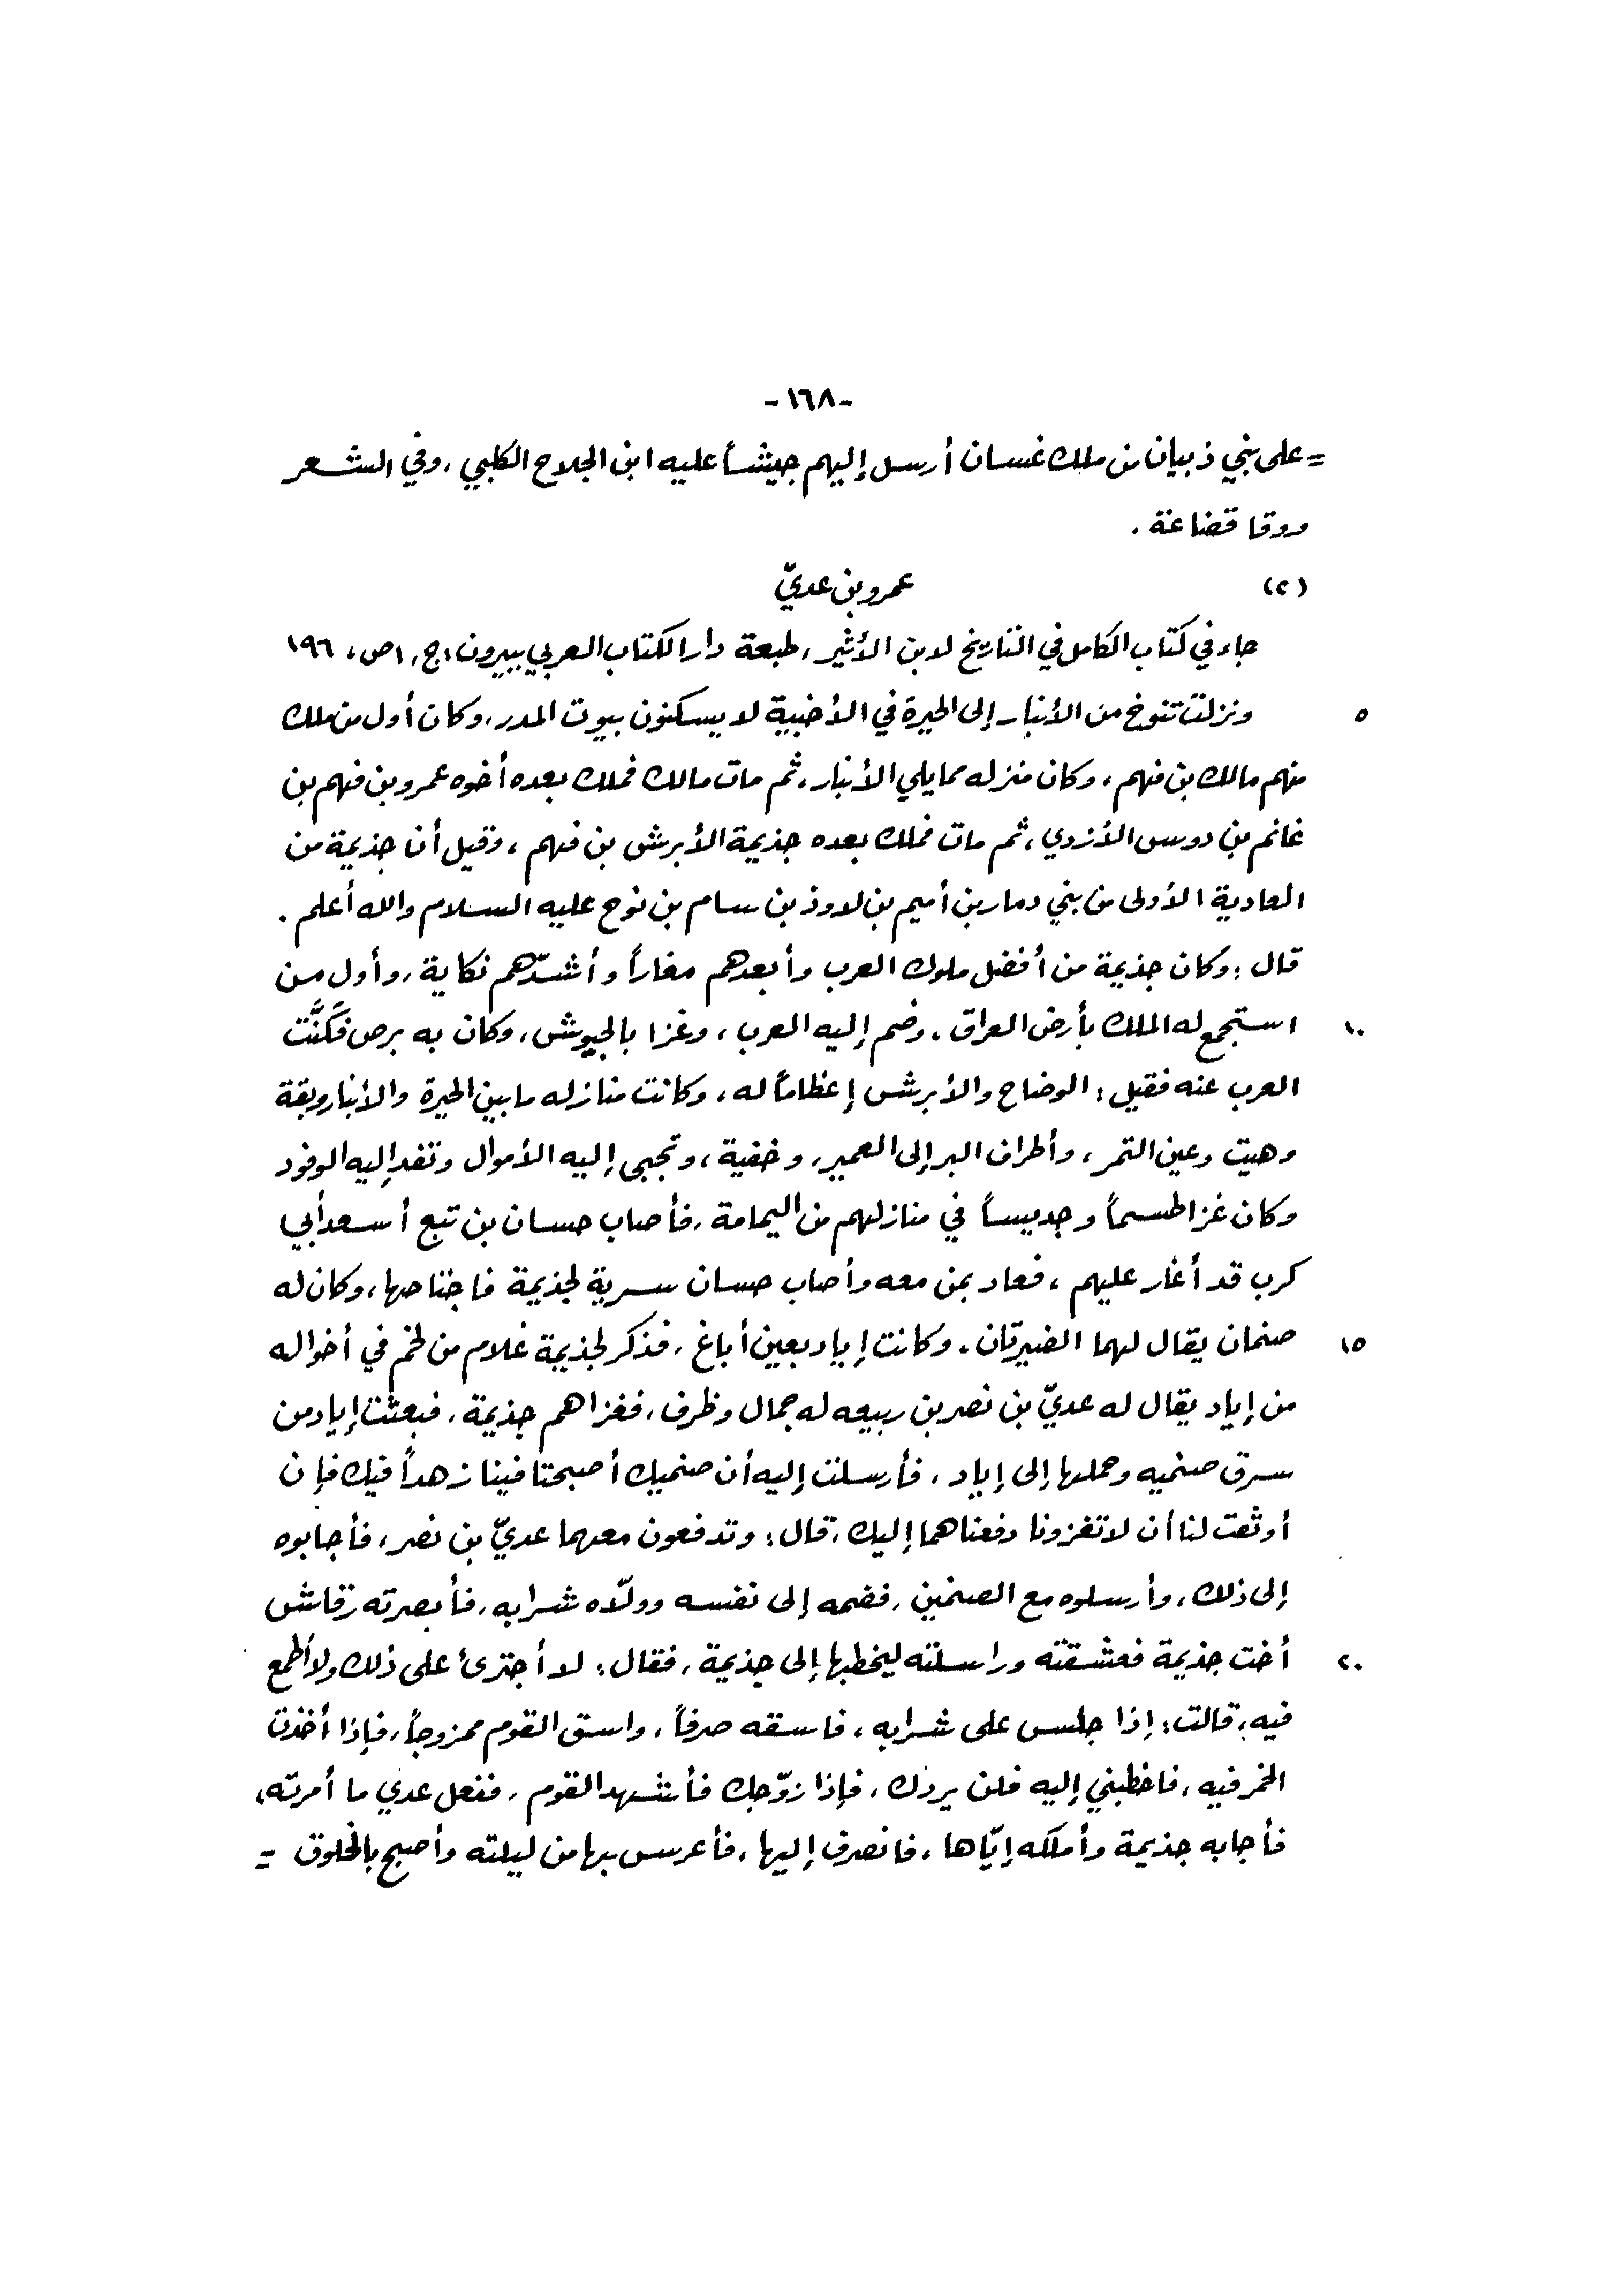 -١٦٨-
= على بني ذبيان من ملك غسان أرسل إليهم جيشاً عليه ابن الجلاح الكلبي ، وفي الشعر
روقا قضاعة .
(٢) عمرو بن عديّ
جاء في كتاب الكامل في التاريخ لابن الأثير ، طبعة دار الكتاب العربي ببيروت : ج ، ١ ص ، ١٩٦
٥ ونزلت تنوخ من الأنبار إلى الحيرة في الأخبية لا يسكنون بيوت المدر ، وكان أول من ملك
منهم مالك بن فهم ، وكان منزله مما يلي الأنبار ، ثم مات مالك فملك بعده أخوه عمرو بن فهم بن
غانم بن دوس الأزدي ، ثم مات فملك بعده جذيمة الأبرش بن فهم ، وقيل أن جذيمة من
العادية الأولى من بني دمار بن أميم بن لاوذ بن سام بن نوح عليه السلام والله أعلم .
قال : وكان جذيمة من أفضل ملوك العرب وأبعدهم مغاراً وأشدّهم نكاية ، وأول من
١٠ استجمع له الملك بأرض العراق ، وضم إليه العرب ، وغزا بالجيوش ، وكان به برص فكَنَّت
العرب عنه فقيل : الوضاح والأبرش إعظاماً له ، وكانت منازله ما بين الحيرة والأنبار وبقة
وهيت وعين التمر ، وأطراف البر إلى العمير ، وخفية ، وتجبى إليه الأموال وتفد إليه الوفود
وكان غزا طسماً وجديساً في منازلهم من اليمامة ، فأصاب حسان بن تبع أسعد أبي
كرب قد أغار عليهم ، فعاد بمن معه وأصاب حسان سرية لجذيمة فاجتاحها ، وكان له
١٥ صنمان يقال لهما الضيزنان ، وكانت إياد بعين أباغ ، فذكر لجذيمة غلام من لخم في أخواله
من إياد يقال له عديّ بن نصر بن ربيعه له جمال وظرف ، فغزاهم جذيمة ، فبعثت إياد من
سرق صنميه وحملها إلى إياد ، فأرسلت إليه أن صنميك أصبحتا فينا زهداً فيك فإن
أوثقت لنا أن لا تغزونا دفعناهما إليك ، قال : وتدفعون معهما عديّ بن نصر ، فأجابوه
إلى ذلك ، وأرسلوه مع الصنمين ، فضمه إلى نفسه وولّاه شرابه ، فأبصرته رقاش
٢٠ أخت جذيمة فعشقته وراسلته ليخطبها إلى جذيمة ، فقال : لا أجترئ على ذلك ولا أطمع
فيه ، قالت : إذا جلس على شرابه ، فاسقه صرفاً ، واسق القوم ممزوجاً ، فإذا أخذت
الخمر فيه ، فاخطبني إليه فلن يردك ، فإذا زوّجك فأشهد القوم ، ففعل عدي ما أمرته ،
فأجابه جذيمة وأملكه إيّاها ، فانصرف إليها ، فأعرس بها من ليلته وأصبح بالخلوق =